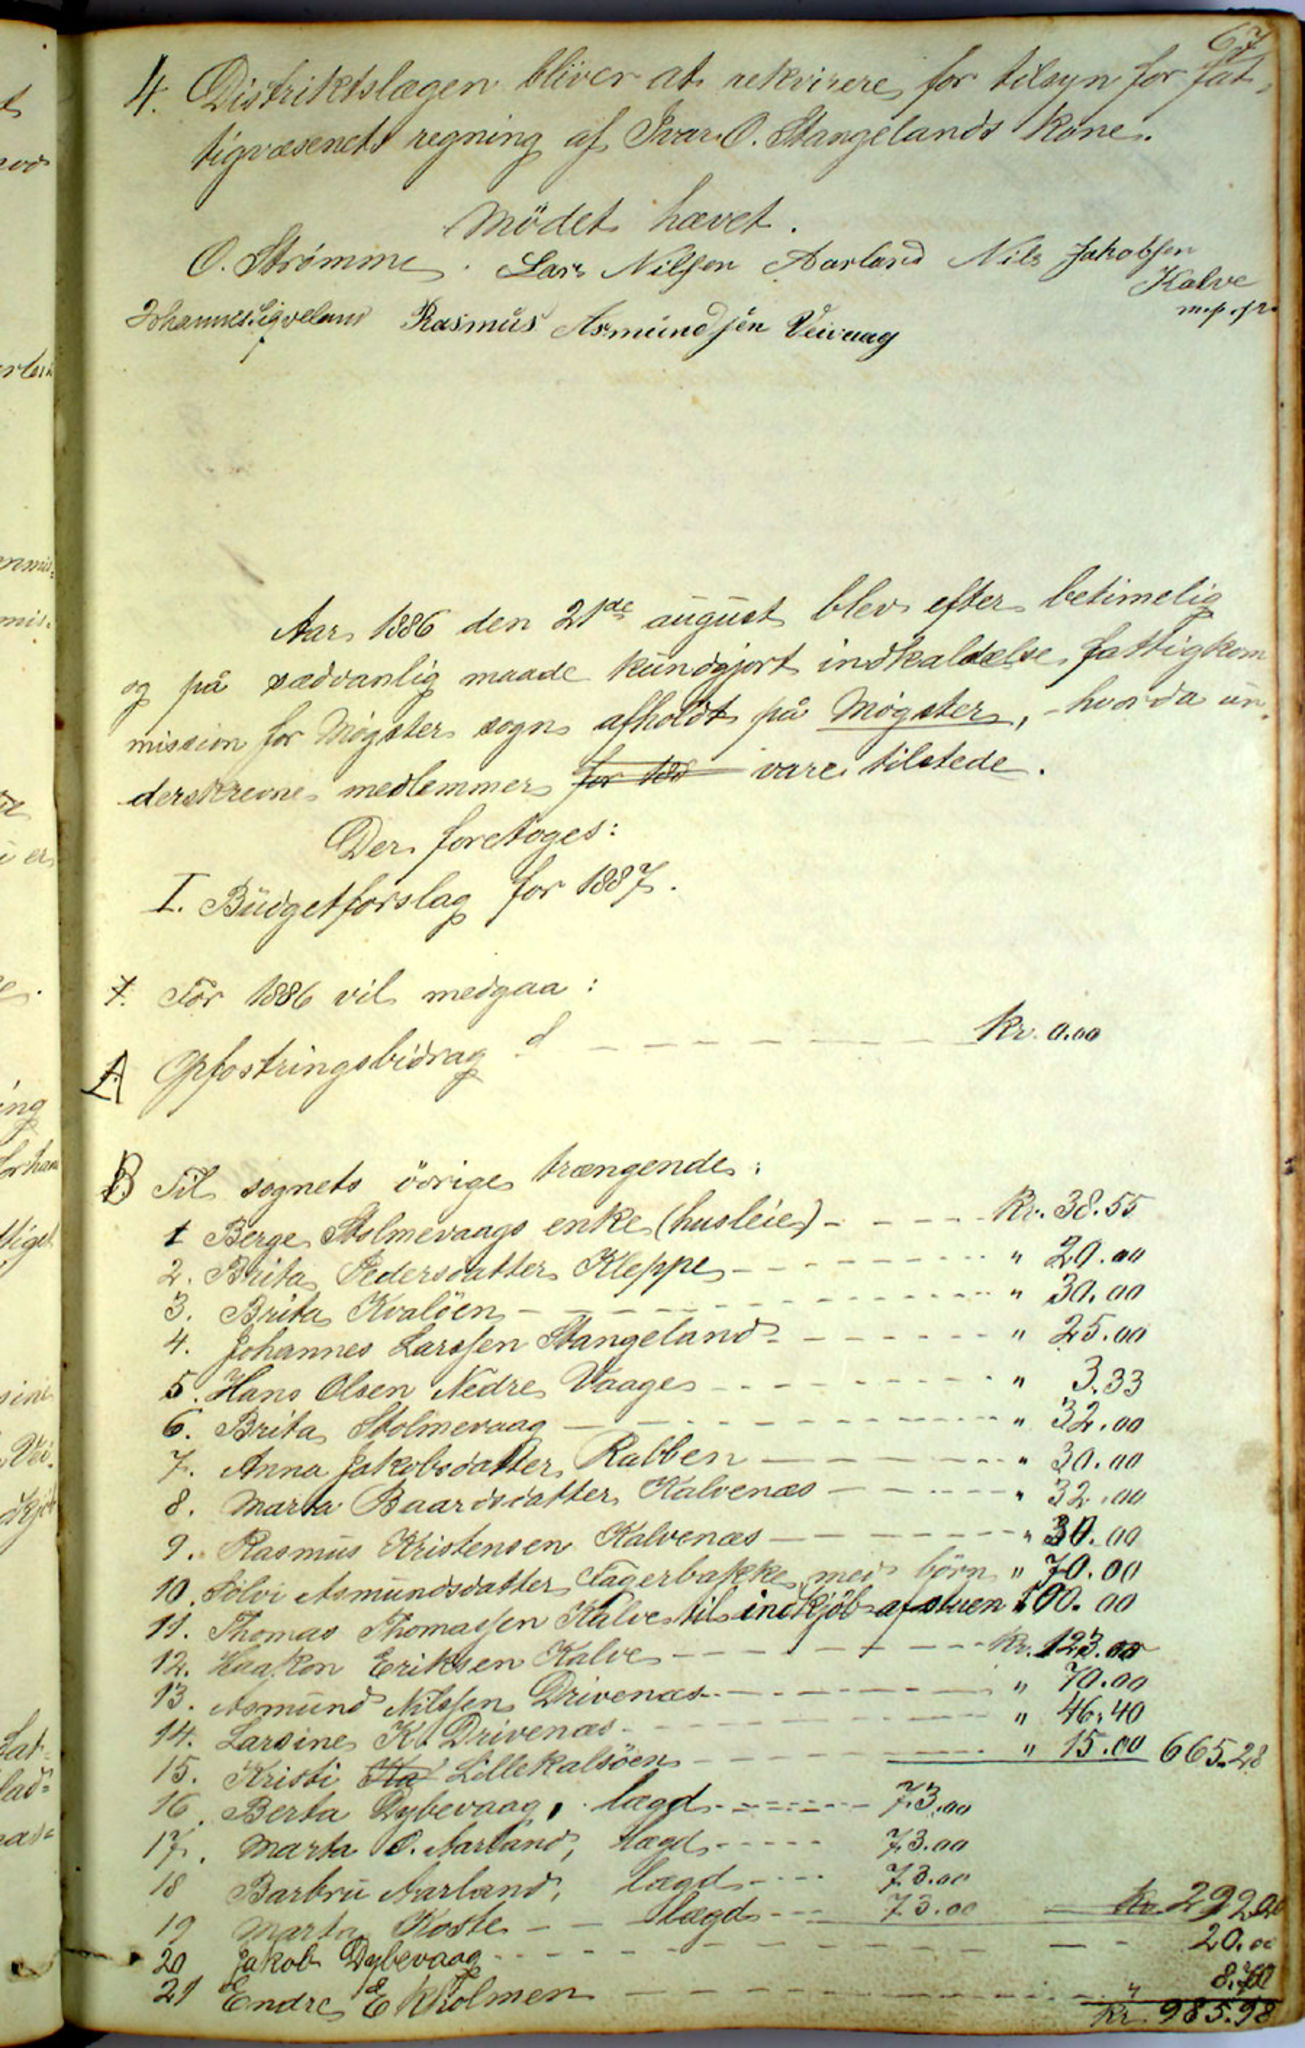 67
4. Distriktslægen bliver at rekvirere for tilsyn for fat-
tigvæsenets regning af Ivar O. Stangelands kone.
Mödet hævet.
O. Strømme. Lars Nilsen Aarland Nils Jakobsen
Kalve
m.p.p.
Johannes Sigveland Rasmus Asmundsen Veivaag
Aar 1886 den 21de august blev efter betimelig
og på sædvanlig maade kundgjort indkaldelse fattigkom
mission for Møgster sogn afholdt på Møgster, - hvorda un-
derskrevne medlemmer for 188 vare tilstede.
Der foretoges:
I. Budgetforslag for 1887.
For 1886 vil medgaa:
A Opfostringsbidrag kr. 0.00
B Til sognets övrige trængende:
1 Berge Stolmevaags enke (husleie) - Kr. 38.55
2. Brita Pedersdatter Kleppe - " 20.00
3. Brita Kvalöen - " 30.00
4. Johannes Larssen Stangeland - " 25.00
5. Hans Olsen Nedre Vaage - " 3.33
6. Brita Stolmevaag - " 32.00
7. Anna Jakobsdatter Rabben - " 30.00
8. Marta Baardsdatter Kalvenæs - " 32.00
9. Rasmus Kristensen Kalvenæs - " 30.00
10. Sölvi Asmundsdatter Fagerbakke med börn " 70.00
11. Thomas Thomassen Kalve til indkjöb af stuen 100.00
12. Haakon Eriksen Kalve - Kr. 123.00
13. Asmund Nilssen Drivenæs - " 70.00
14. Larsine K. Drivenæs - " 46.40
15. Kristi Ka Lillekalsöen - " 15.00 665.28
16. Berta Dybevaag, lægd - 73.00
17. Marta O. Aarland, lægd - 73.00
18 Barbru Aarland, lægd - 73.00
19 Marta Koste - lægd - 73.00 Kr 292.00
20 Jakob Dybevaag - 20.00
21 Endre Ekholmen - " 8.70
Kr. 985.98